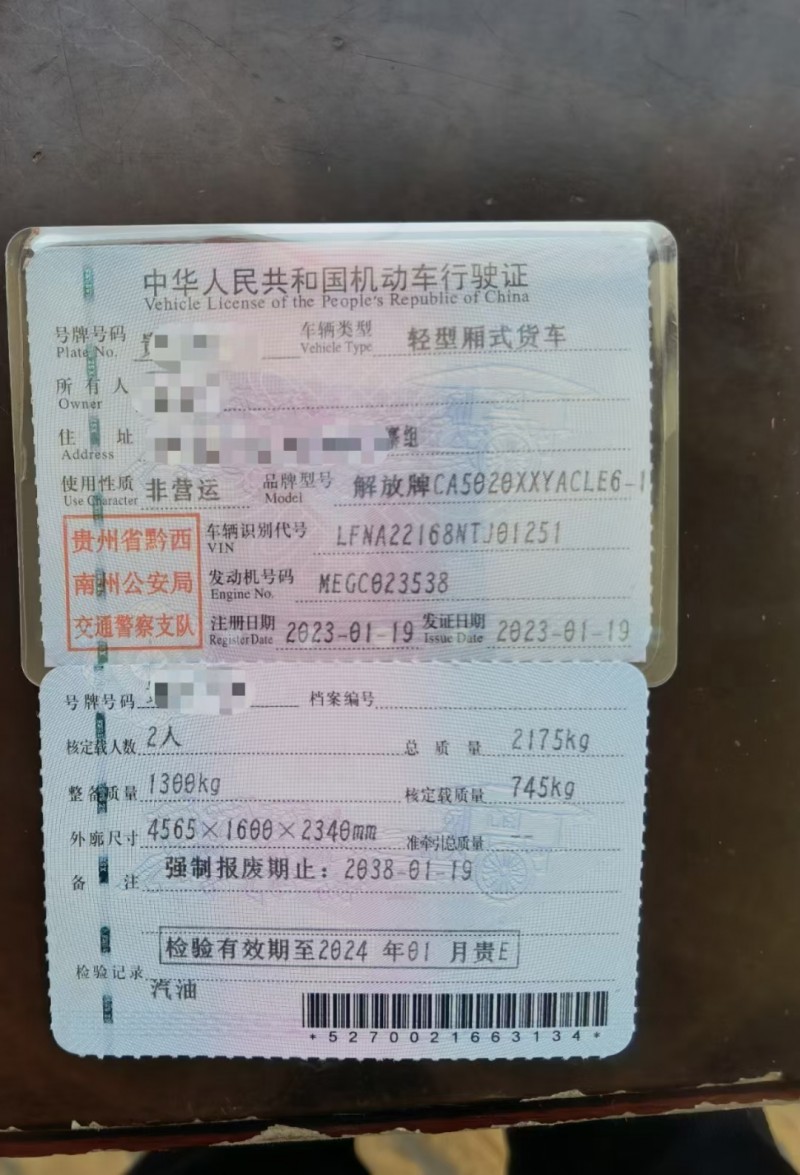 中华人民共和国机动车行驶证
Vehicle License of the People's Republic of China
号牌号码 贵 车辆类型 轻型厢式货车
Plate No. Vehicle Type
所有人
Owner
住址 寨组
Address
使用性质 非营运 品牌型号 解放牌CA5020XXYACLE6-1
Use Character Model
贵州省黔西
南州公安局
交通警察支队
车辆识别代号 LFNA22168NTJ01251
VIN
发动机号码 MEGC023538
Engine No.
注册日期 2023-01-19 发证日期 2023-01-19
Register Date Issue Date
号牌号码 档案编号
核定载人数 2人 总质量 2175kg
整备质量 1300kg 核定载质量 745kg
外廓尺寸 4565×1600×2340mm 准牵引总质量 --
备注 强制报废期止：2038-01-19
检验有效期至2024 年01 月贵E
检验记录
汽油
*5270021663134*